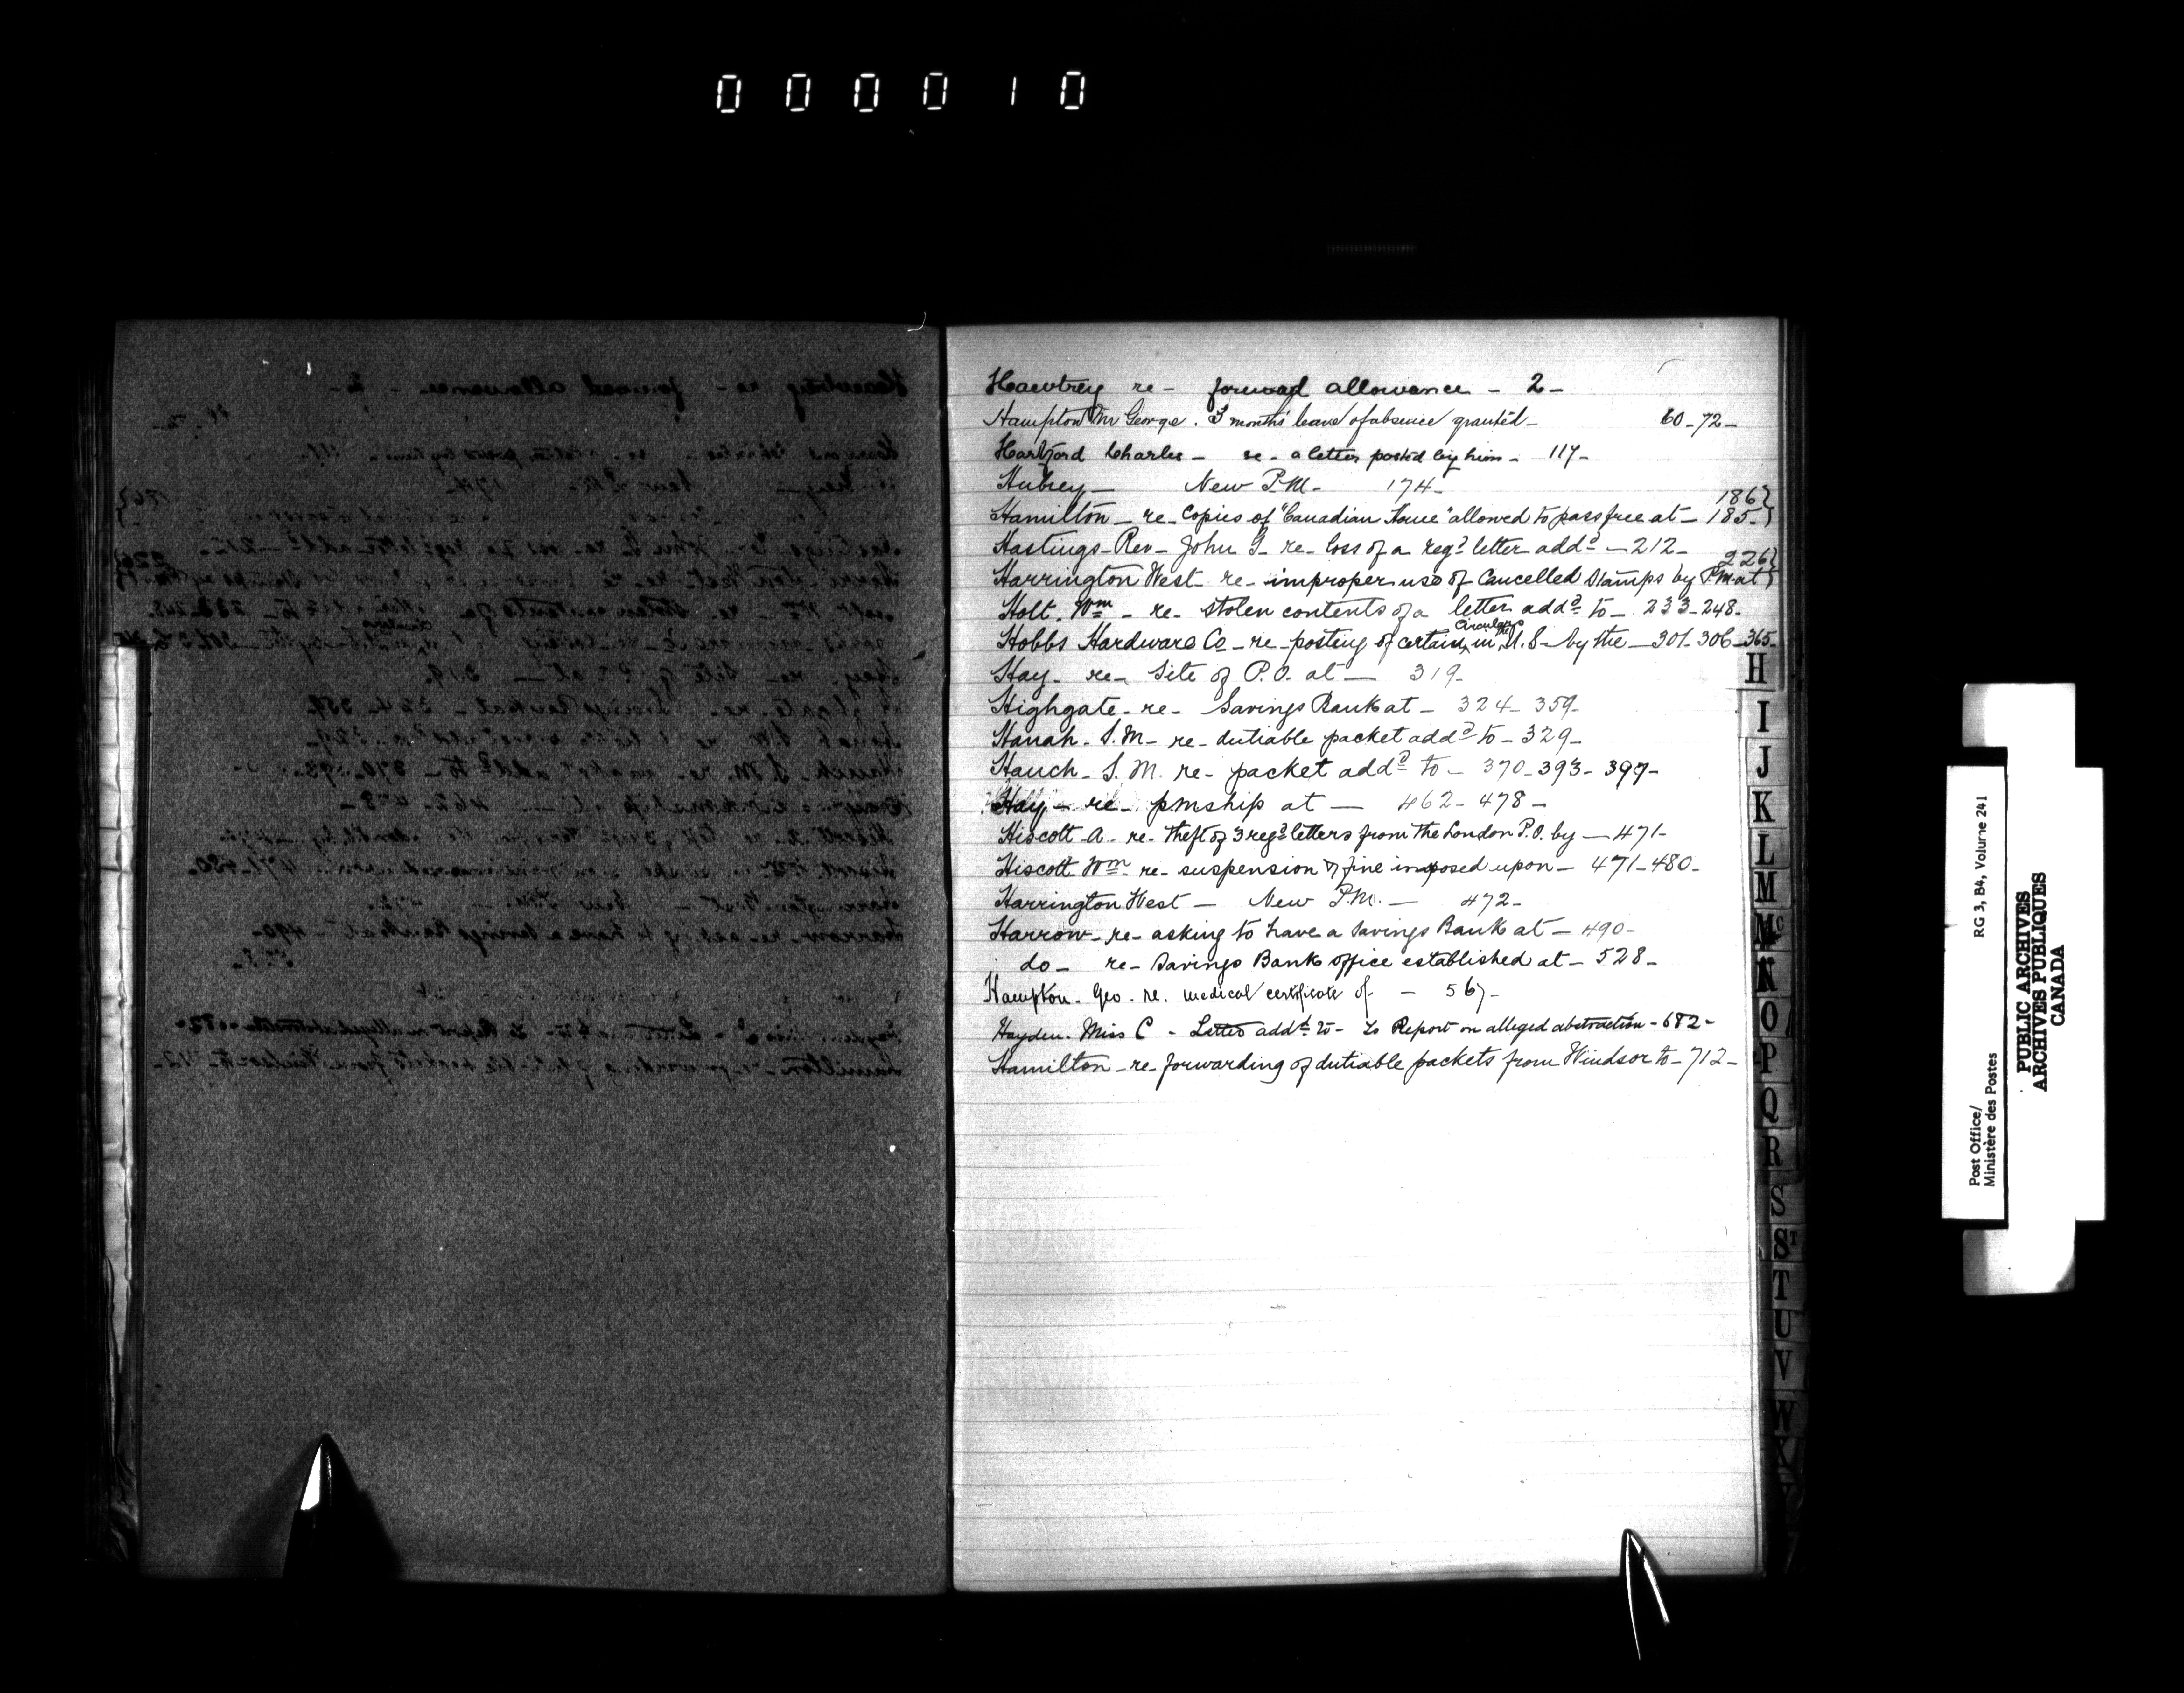 000010
Hawtrey re - forward allowance - 2 -
Hampton Mr George. 3 months' leave of absence granted - 60 - 72 -
Hartford Charles - re - a letter posted by him - 117 -
Hubrey - New P.M. - 174 -
Hamilton - re - Copies of "Canadian Home" allowed to pass free at - 185 - 186 }
Hastings - Rev - John G - re - loss of a regd letter addd - 212 -
Harrington West - re - improper use of Cancelled Stamps by P.M. at } 226
Holt. Wm - re - stolen contents of a letter addd to - 233 - 248 -
Hobbs Hardware Co - re - posting of certain circulars in the U.S - by the - 301 - 306 - 365 -
Hay - re - Site of P.O. at - 319 -
Highgate - re - Savings Bank at - 324 - 359 -
Hanah - S.M - re - dutiable packet addd to - 329 -
Hauch - S.M. re - packet addd to - 370 - 393 - 397 -
Hay - re - pmship at - 462 - 478 -
Hiscott - A - re - theft of 3 regd letters from the London P.O. by - 471 -
Hiscott - Wm - re - suspension & fine imposed upon - 471 - 480 -
Harrington West - New P.M. - 472 -
Harrow - re - asking to have a Savings Bank at - 490 -
do - re - Savings Bank office established at - 528 -
Hampton - Geo. re. medical certificate of - 567 -
Hayden - Miss C - Letter addd to - to Report on alleged abstraction - 682 -
Hamilton - re - forwarding of dutiable packets from Windsor to - 712 -
H
I
J
K
L
M
Mc
N
O
P
Q
R
S
St
T
U
V
W
X
Post Office/
Ministère des Postes
RG 3, B4, Volume 241
PUBLIC ARCHIVES
ARCHIVES PUBLIQUES
CANADA